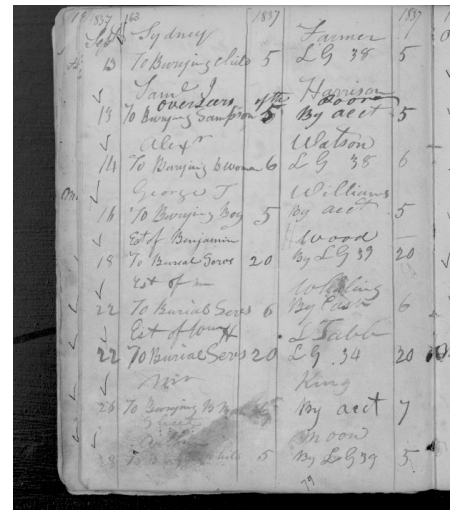 1837 163 1837 1837
Sept Sydney Farmer
13 To Burying child 5 L G 38 5
Saml J Harrison
overseers of the poor
13 To Burying Sampson 5 By acct 5
Alexr Watson
14 To Burying B woman 6 L G 38 6
George T Williams
16 To Burying Boy 5 By acct 5
Est of Benjamin Wood
18 To Burial Servs 20 By L G 39 20
Est of
22 To Burial Servs 6 By Cash 6
Est of L Tabb
22 To Burial Servs 20 L G . 34 20
King
26 To Burying By acct 7
Moon
28 5 By L G 39 5
79